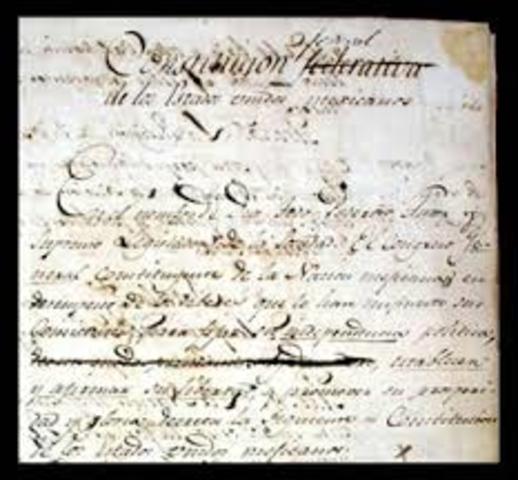 federal
Constitución federativa
de los Estados unidos mexicanos
En el nombre de Dios Todo Poderoso Autor y
Supremo Legislador de la Sociedad. El Congreso Ge-
neral Constituyente de la Nacion mexicana, en
desempeño de los deberes que le han impuesto sus
Comitentes, para fijar su independencia politica,
establecer
y afirmar su libertad y promover su prosperi-
dad y gloria, decreta la siguiente Constitucion
de los Estados unidos mexicanos